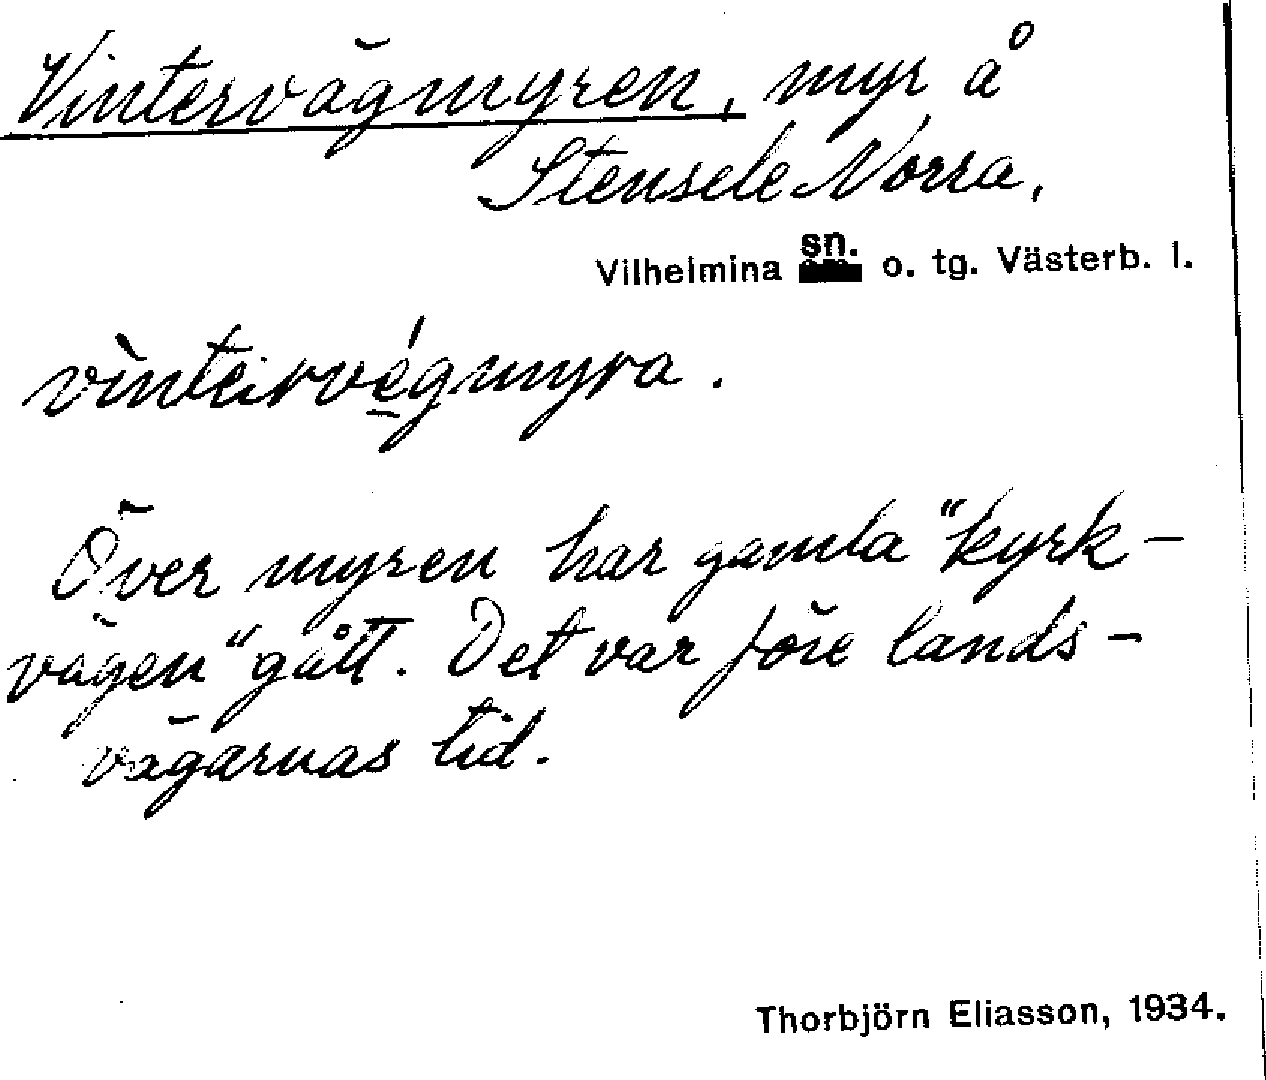 Vintervägmyren, myr å
Stensele Norra,
Vilhelmina sn. o. tg. Västerb. l.
vìnteirvé̱gmyra.
Över myren har gamla "kyrk-
vägen" gått. Det var före lands-
vägarnas tid.
Thorbjörn Eliasson, 1934.